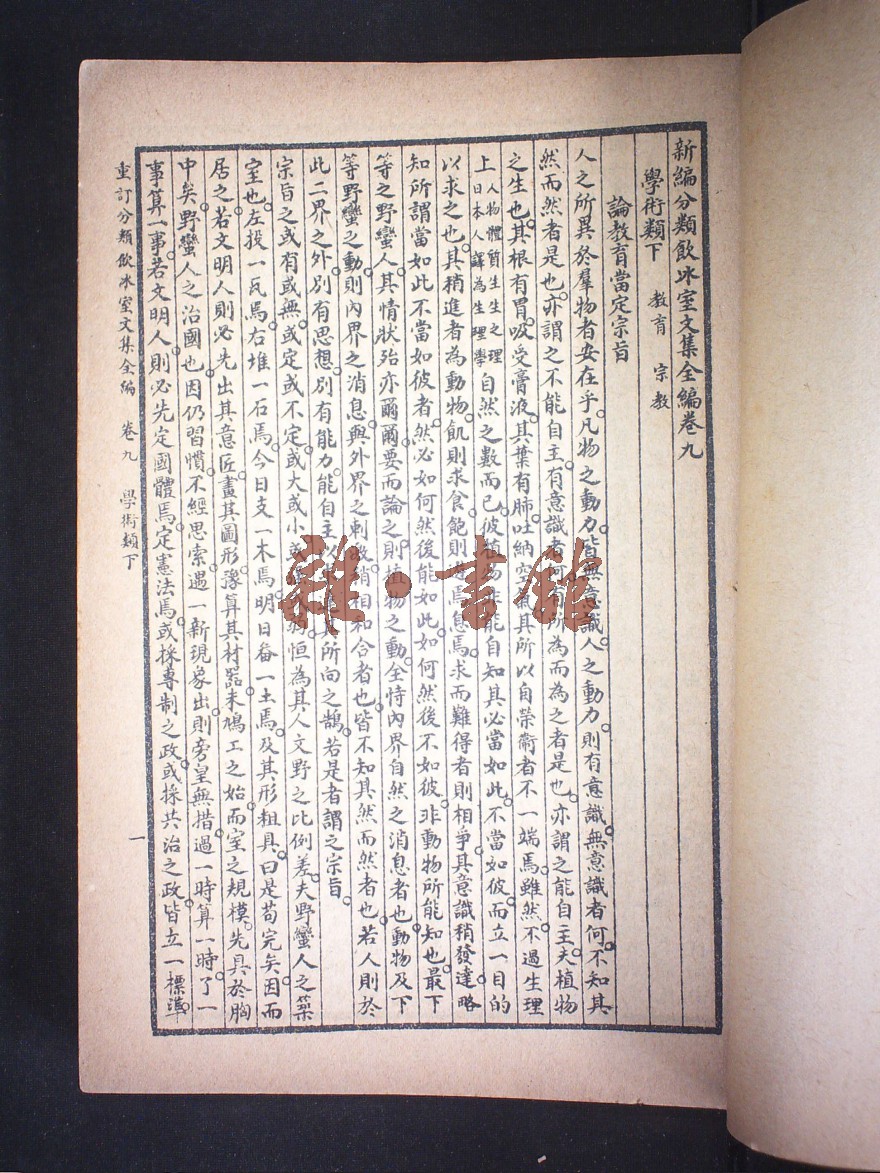 新編分類飲冰室文集全編卷九
學術類下 教育 宗教
論教育當定宗旨
人之所異於羣物者安在乎。凡物之動力。皆無意識。人之動力。則有意識。無意識者何。不知其
然而然者是也。亦謂之不能自主。有意識者何。有所為而為之者是也。亦謂之能自主。夫植物
之生也。其根有胃。吸受膏液。其葉有肺。吐納空氣。其所以自榮衛者不一端焉。雖然。不過生理
上人物體質生生之理日本人譯為生理學自然之數而已。彼植物非能自知其必當如此。不當如彼。而立一目的
以求之也。其稍進者為動物。飢則求食。飽則遊焉息焉。求而難得者則相爭。其意識稍發達。略
知所謂當如此不當如彼者。然必如何然後能如此。如何然後不如彼。非動物所能知也。最下
等之野蠻人。其情狀殆亦爾爾。要而論之。則植物之動。全恃內界自然之消息者也。動物及下
等野蠻之動。則內界之消息。與外界之刺激。稍相和合者也。皆不知其然而然者也。若人則於
此二界之外。別有思想。別有能力。能自主以求達其所向之鵠。若是者謂之宗旨。
宗旨之或有或無。或定或不定。或大或小或強或弱。恒為其人文野之比例差。夫野蠻人之築
室也。左投一瓦焉。右堆一石焉。今日支一木焉。明日畚一土焉。及其形粗具。曰是苟完矣。因而
居之。若文明人則必先出其意匠。畫其圖形。豫算其材器。未鳩工之始。而室之規模。先具於胸
中矣。野蠻人之治國也。因仍習慣。不經思索。遇一新現象出。則旁皇無措。過一時算一時。了一
事算一事。若文明人。則必先定國體焉。定憲法焉。或採專制之政。或採共治之政。皆立一標準。
重訂分類飲冰室文集全編 卷九 學術類下 一
雜·書館